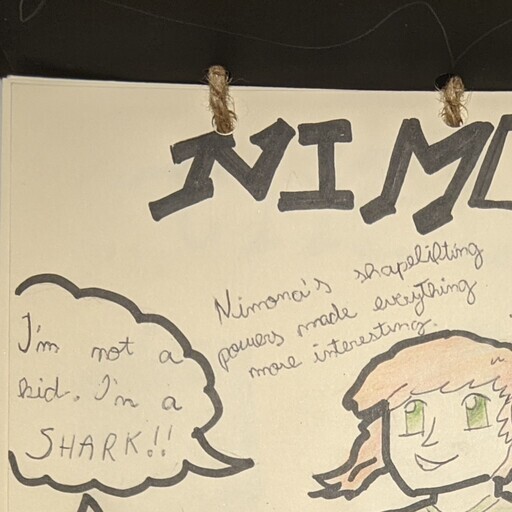 NIMO
Nimona's shapelifting
powers made everything
more interesting.
I'm not a
kid. I'm a
SHARK!!